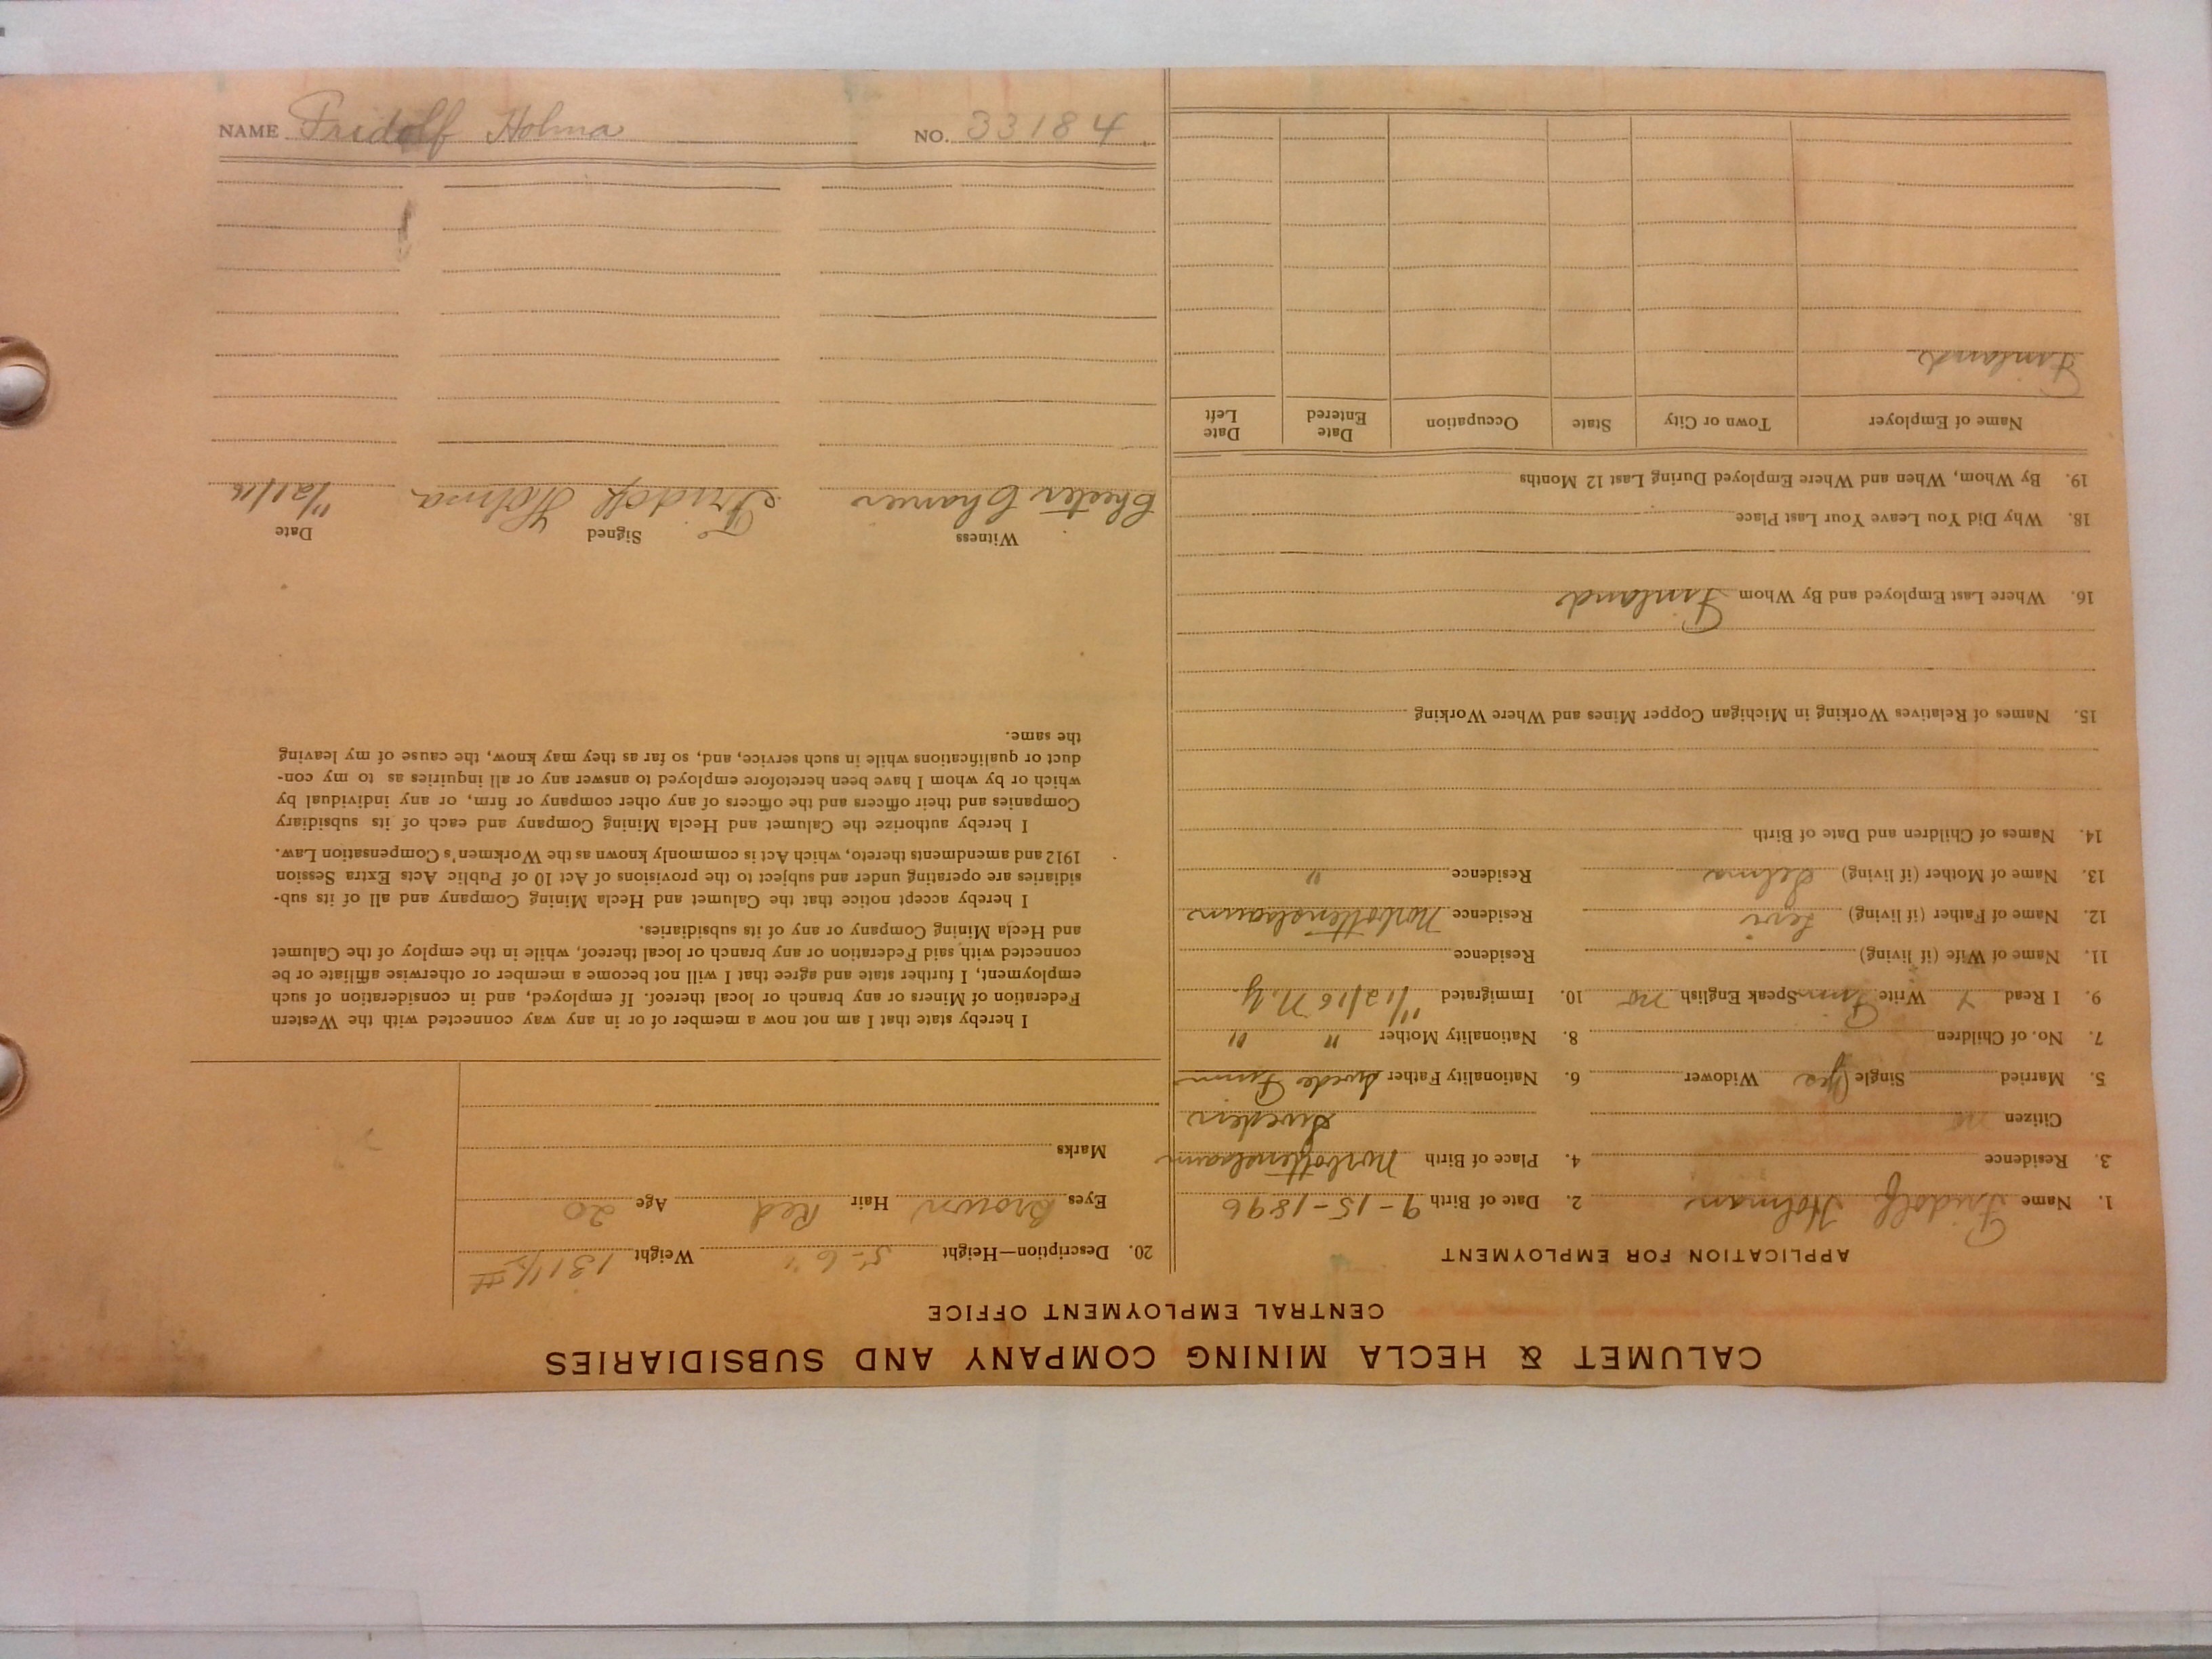 NAME Fridolf Holma NO. 33184
CALUMET & HECLA MINING COMPANY AND SUBSIDIARIES
CENTRAL EMPLOYMENT OFFICE
APPLICATION FOR EMPLOYMENT
1. Name Fridolf Holman 2. Date of Birth 9-15-1896
3. Residence 4. Place of Birth Norbottenslaum
Citizen no Sweden
5. Married Single Yes Widower 6. Nationality Father Swede Finn
7. No. of Children 8. Nationality Mother " "
9. I Read Y Write Finn Speak English no 10. Immigrated 11/12/16 N.Y.
11. Name of Wife (if living) Residence
12. Name of Father (if living) Levi Residence Norbottenslaum
13. Name of Mother (if living) Selma Residence "
14. Names of Children and Date of Birth
15. Names of Relatives Working in Michigan Copper Mines and Where Working
16. Where Last Employed and By Whom Finland
18. Why Did You Leave Your Last Place
19. By Whom, When and Where Employed During Last 12 Months
Name of Employer Town or City State Occupation Date Entered Date Left
Finland
20. Description—Height 5-6" Weight 131½ #
Eyes Brown Hair Red Age 20
Marks
I hereby state that I am not now a member of or in any way connected with the Western
Federation of Miners or any branch or local thereof. If employed, and in consideration of such
employment, I further state and agree that I will not become a member or otherwise affiliate or be
connected with said Federation or any branch or local thereof, while in the employ of the Calumet
and Hecla Mining Company or any of its subsidiaries.
I hereby accept notice that the Calumet and Hecla Mining Company and all of its sub-
sidiaries are operating under and subject to the provisions of Act 10 of Public Acts Extra Session
1912 and amendments thereto, which Act is commonly known as the Workmen's Compensation Law.
I hereby authorize the Calumet and Hecla Mining Company and each of its subsidiary
Companies and their officers and the officers of any other company or firm, or any individual by
which or by whom I have been heretofore employed to answer any or all inquiries as to my con-
duct or qualifications while in such service, and, so far as they may know, the cause of my leaving
the same.
Witness Signed Date
Chester Fridolf Holma 11/21/16